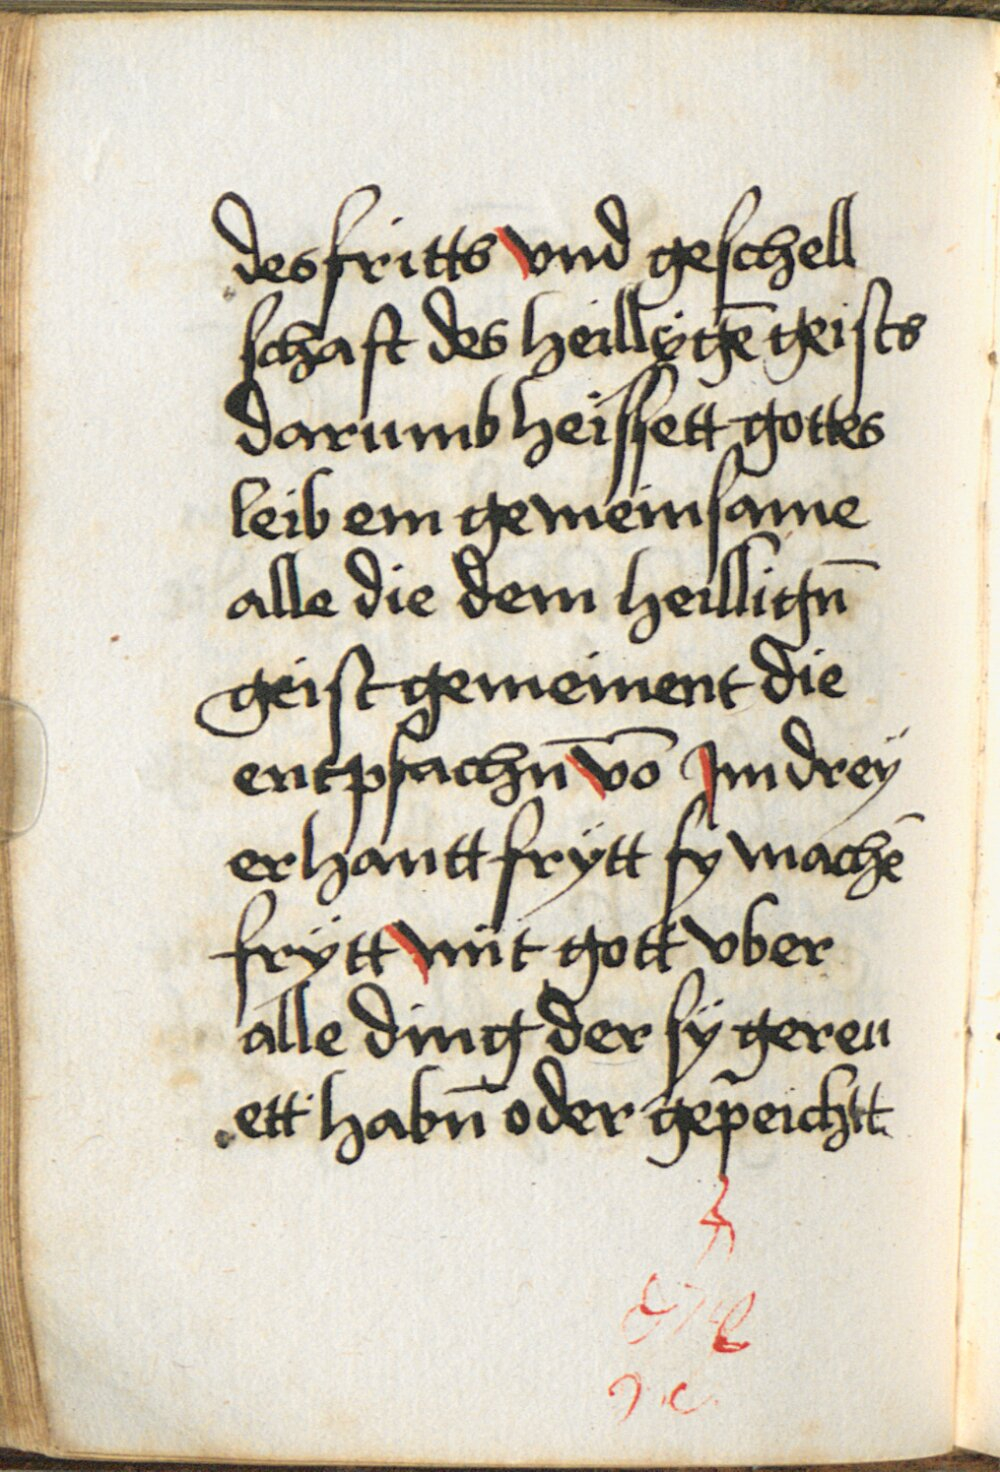 des fritts vnd geschell
schaft des heillÿgē geists
darumb heissett gottes
leib ein gemeinsame
alle die dem heillign̄
geist gemeinent die
entpfachn̄ vō Im dreÿ
erhantt frÿtt sy machē
frÿtt mit gott vber
alle ding der sÿ geren
ett habn̄ oder gep̄eichtt